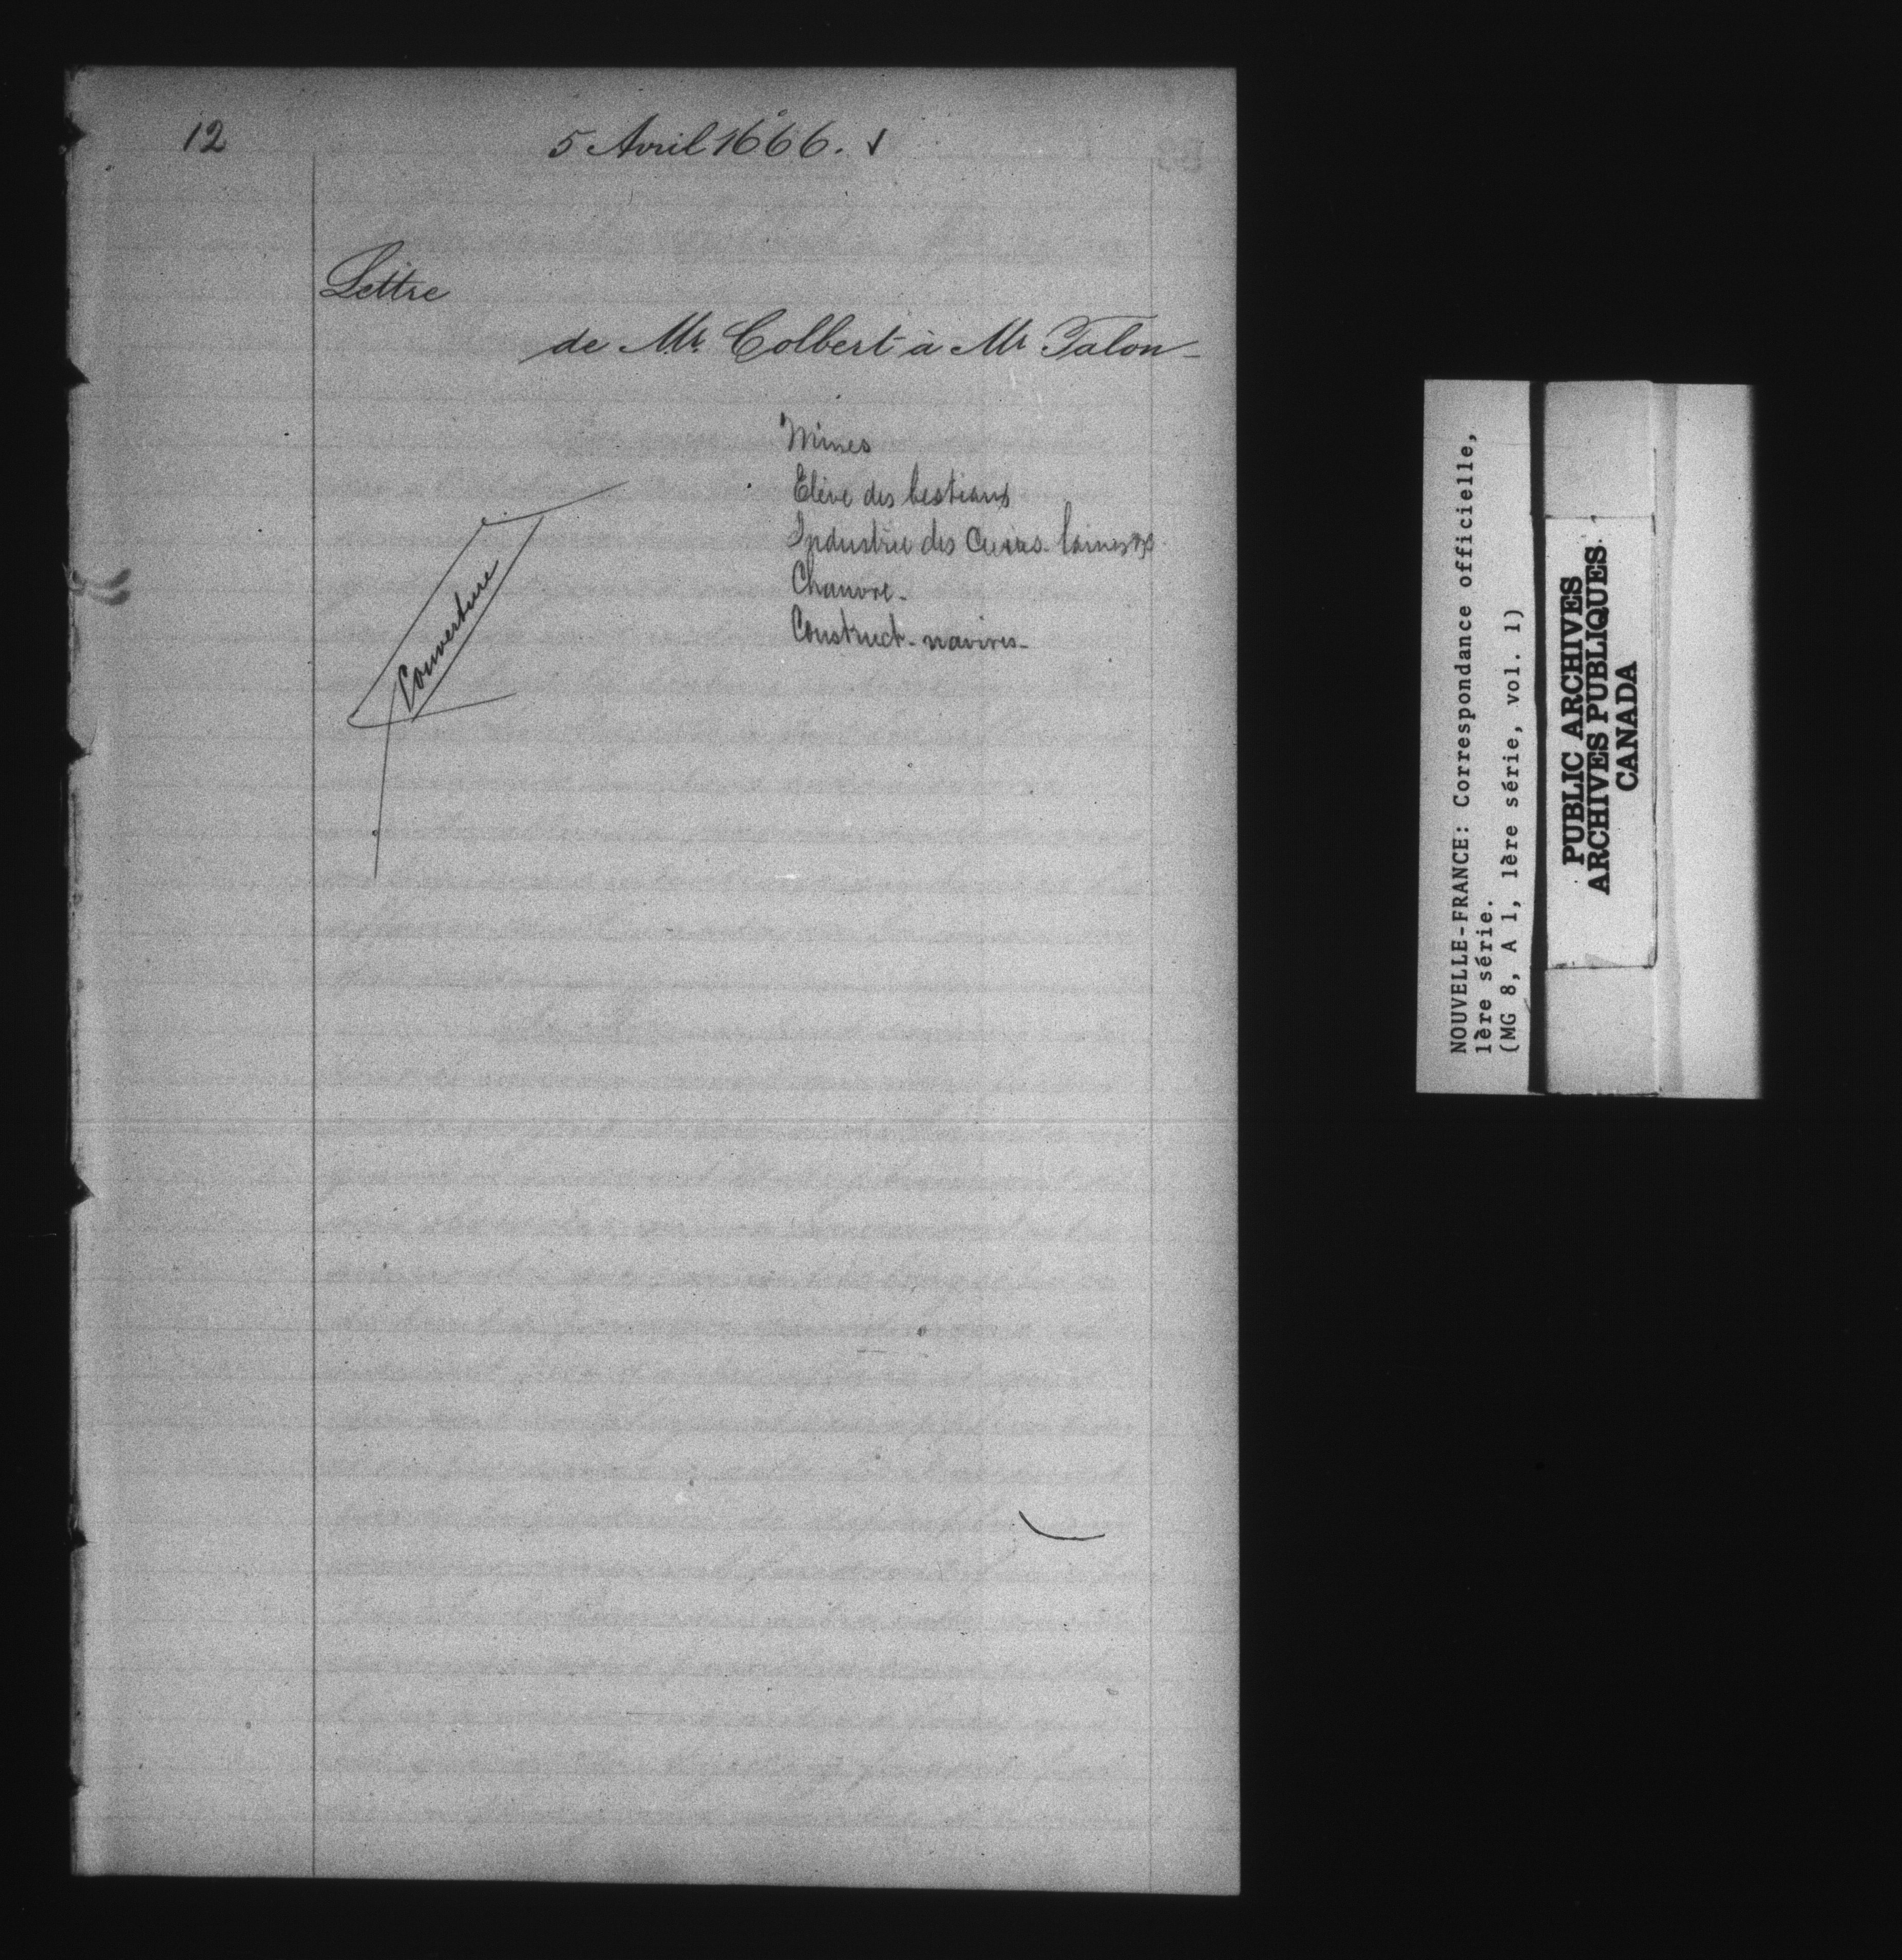 12
5 Avril 1666.
Lettre
de Mr. Colbert à Mr Talon
Mines
Elève des bestiaux
Industrie des Cuirs. laines &
Chanvre.
Construct. navires.
Couverture
NOUVELLE-FRANCE: Correspondance officielle,
1ère série.
(MG 8, A 1, 1ère série, vol. 1)
PUBLIC ARCHIVES
ARCHIVES PUBLIQUES
CANADA